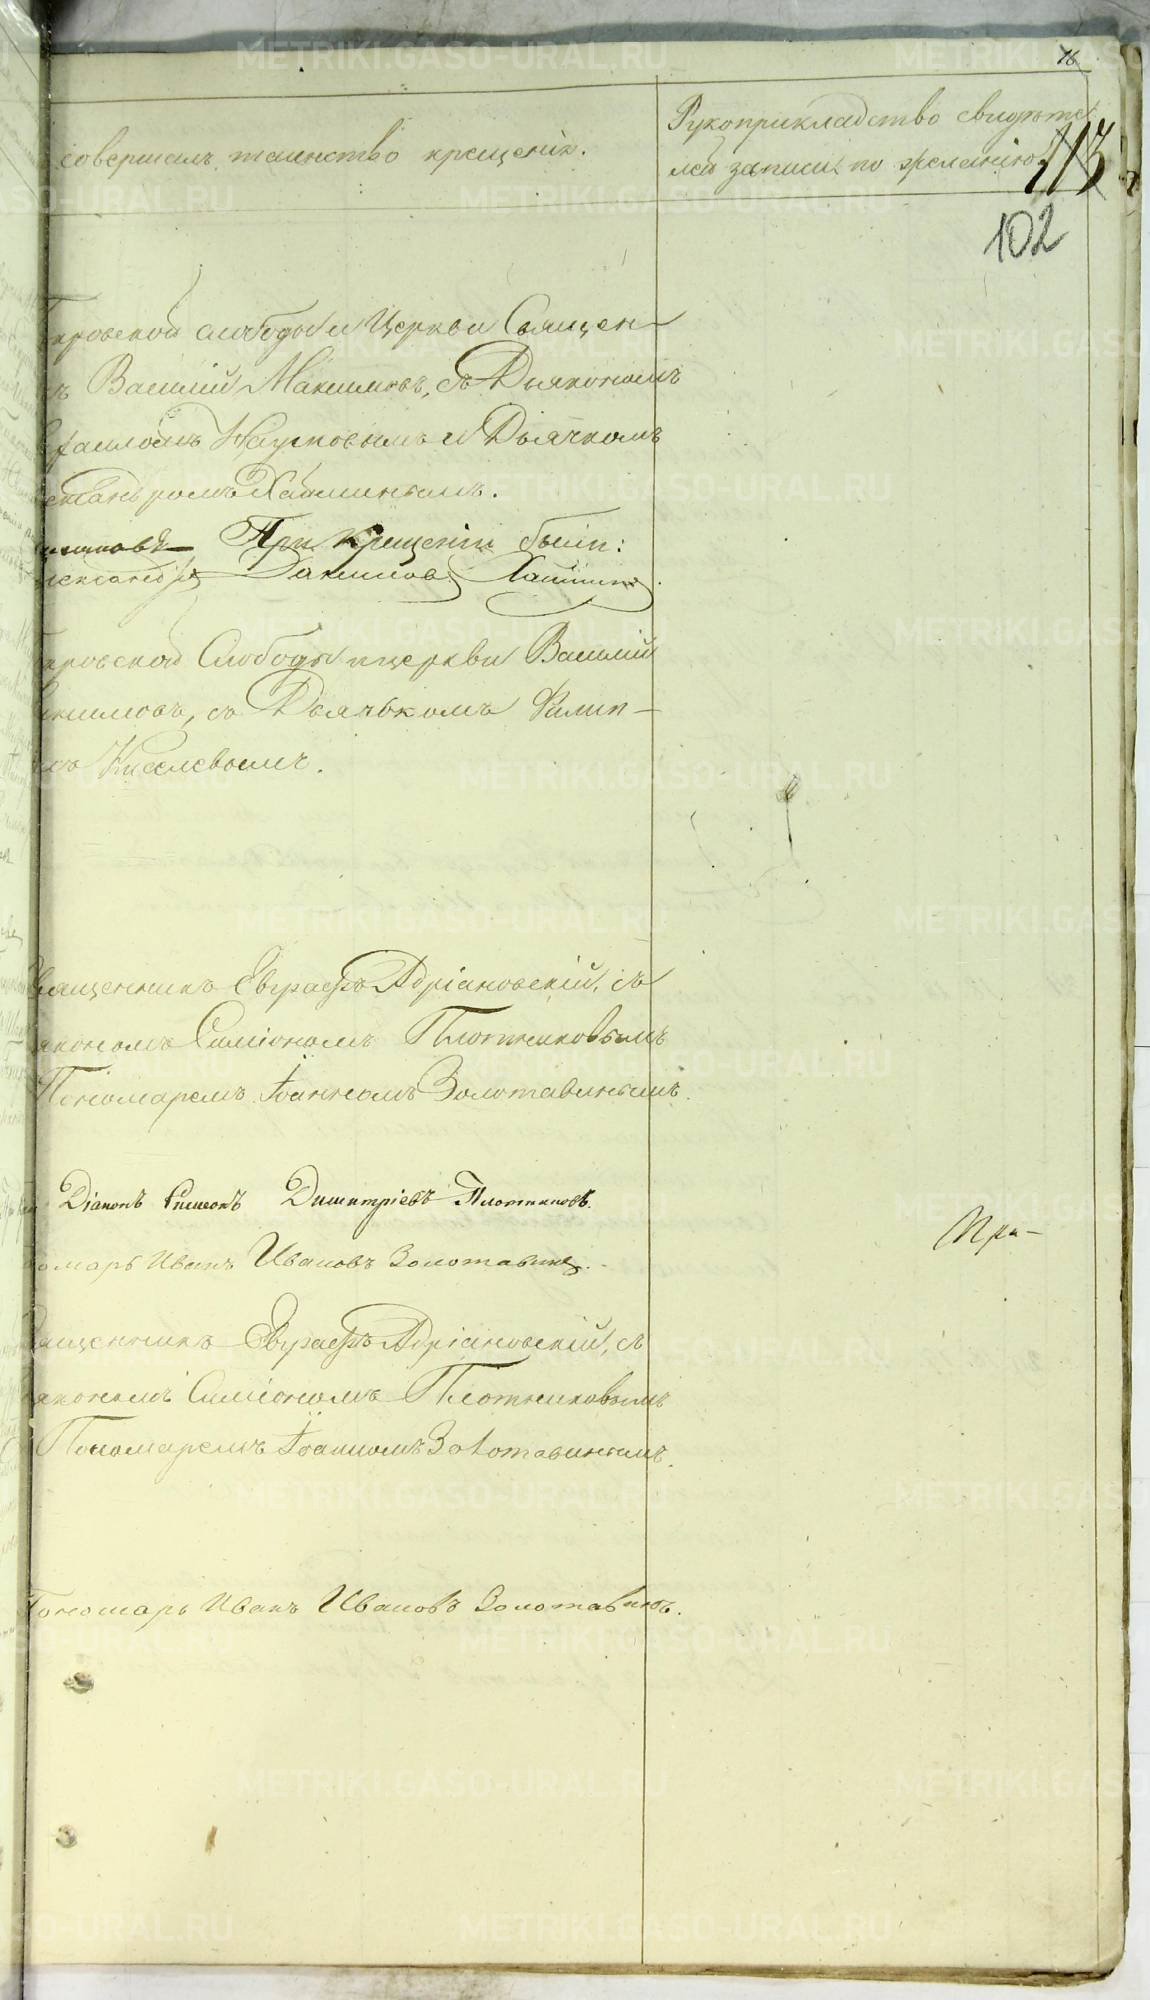 16
совершалъ таинство крещенія.
Рукоприкладство свидѣте
лей записи по желанію
113
102
кровской слободы и Церкви Священ-
ъ Василій Максимовъ, съ Дьякономъ
Наумовымъ и Дьячкомъ
При крещеніи были:
Данилов
кровской Слободы и церкви Василій
симовъ, съ Дьячькомъ Филип-
мъ Киселевымъ.
вященникъ Евграфъ Адріановскій, съ
якономъ Симіономъ Плотниковымъ
Пономаремъ Іоанномъ Золотавинымъ.
Діаконъ Симеонъ Димитріевъ Плотниковъ.
омарь Иванъ Ивановъ Золотавинъ.
При-
ященникъ Евграфъ Адріановскій, съ
якономъ Симіономъ Плотниковымъ
Пономаремъ Іоанномъ Золотавинымъ.
Пономарь Иванъ Ивановъ Золотавинъ.
METRIKI.GASO-URAL.RU